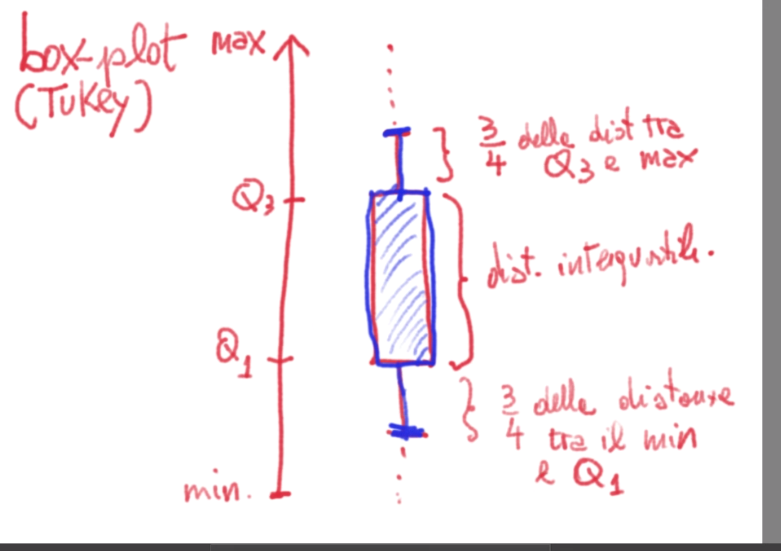 box-plot
(Tukey)
max
Q3
Q1
min.
3/4 delle dist tra
Q3 e max
dist. interquartile.
3/4 delle distanze
tra il min
e Q1